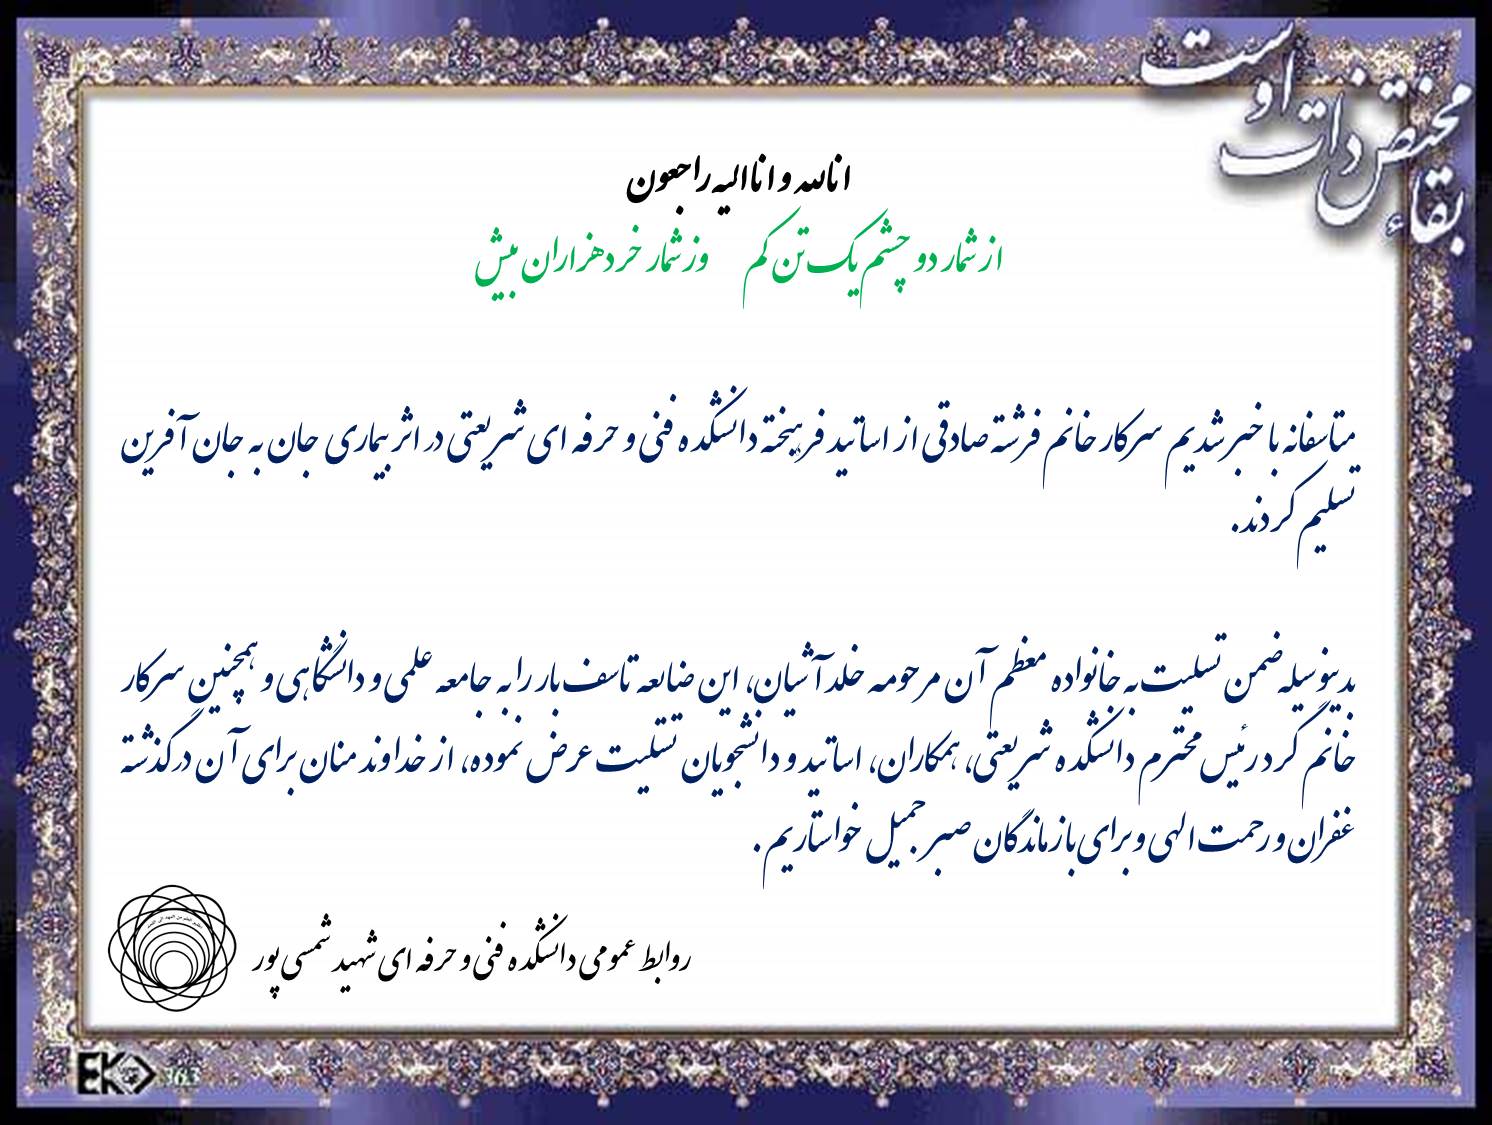 بقاء مختص ذات اوست
انالله و اناالیه راجعون
از شمار دو چشم یک تن کم وز شمار خرد هزاران بیش
متاسفانه با خبر شدیم سرکار خانم فرشته صادقی از اساتید فرهیخته دانشکده فنی و حرفه ای شریعتی در اثر بیماری جان به جان آفرین
تسلیم کردند.
بدینوسیله ضمن تسلیت به خانواده معظم آن مرحومه خلد آشیان، این ضایعه تاسف بار را به جامعه علمی و دانشگاهی و همچنین سرکار
خانم کرد رئیس محترم دانشکده شریعتی، همکاران، اساتید و دانشجویان تسلیت عرض نموده، از خداوند منان برای آن درگذشته
غفران و رحمت الهی و برای بازماندگان صبر جمیل خواستاریم.
روابط عمومی دانشکده فنی و حرفه ای شهید شمسی پور
EK 363